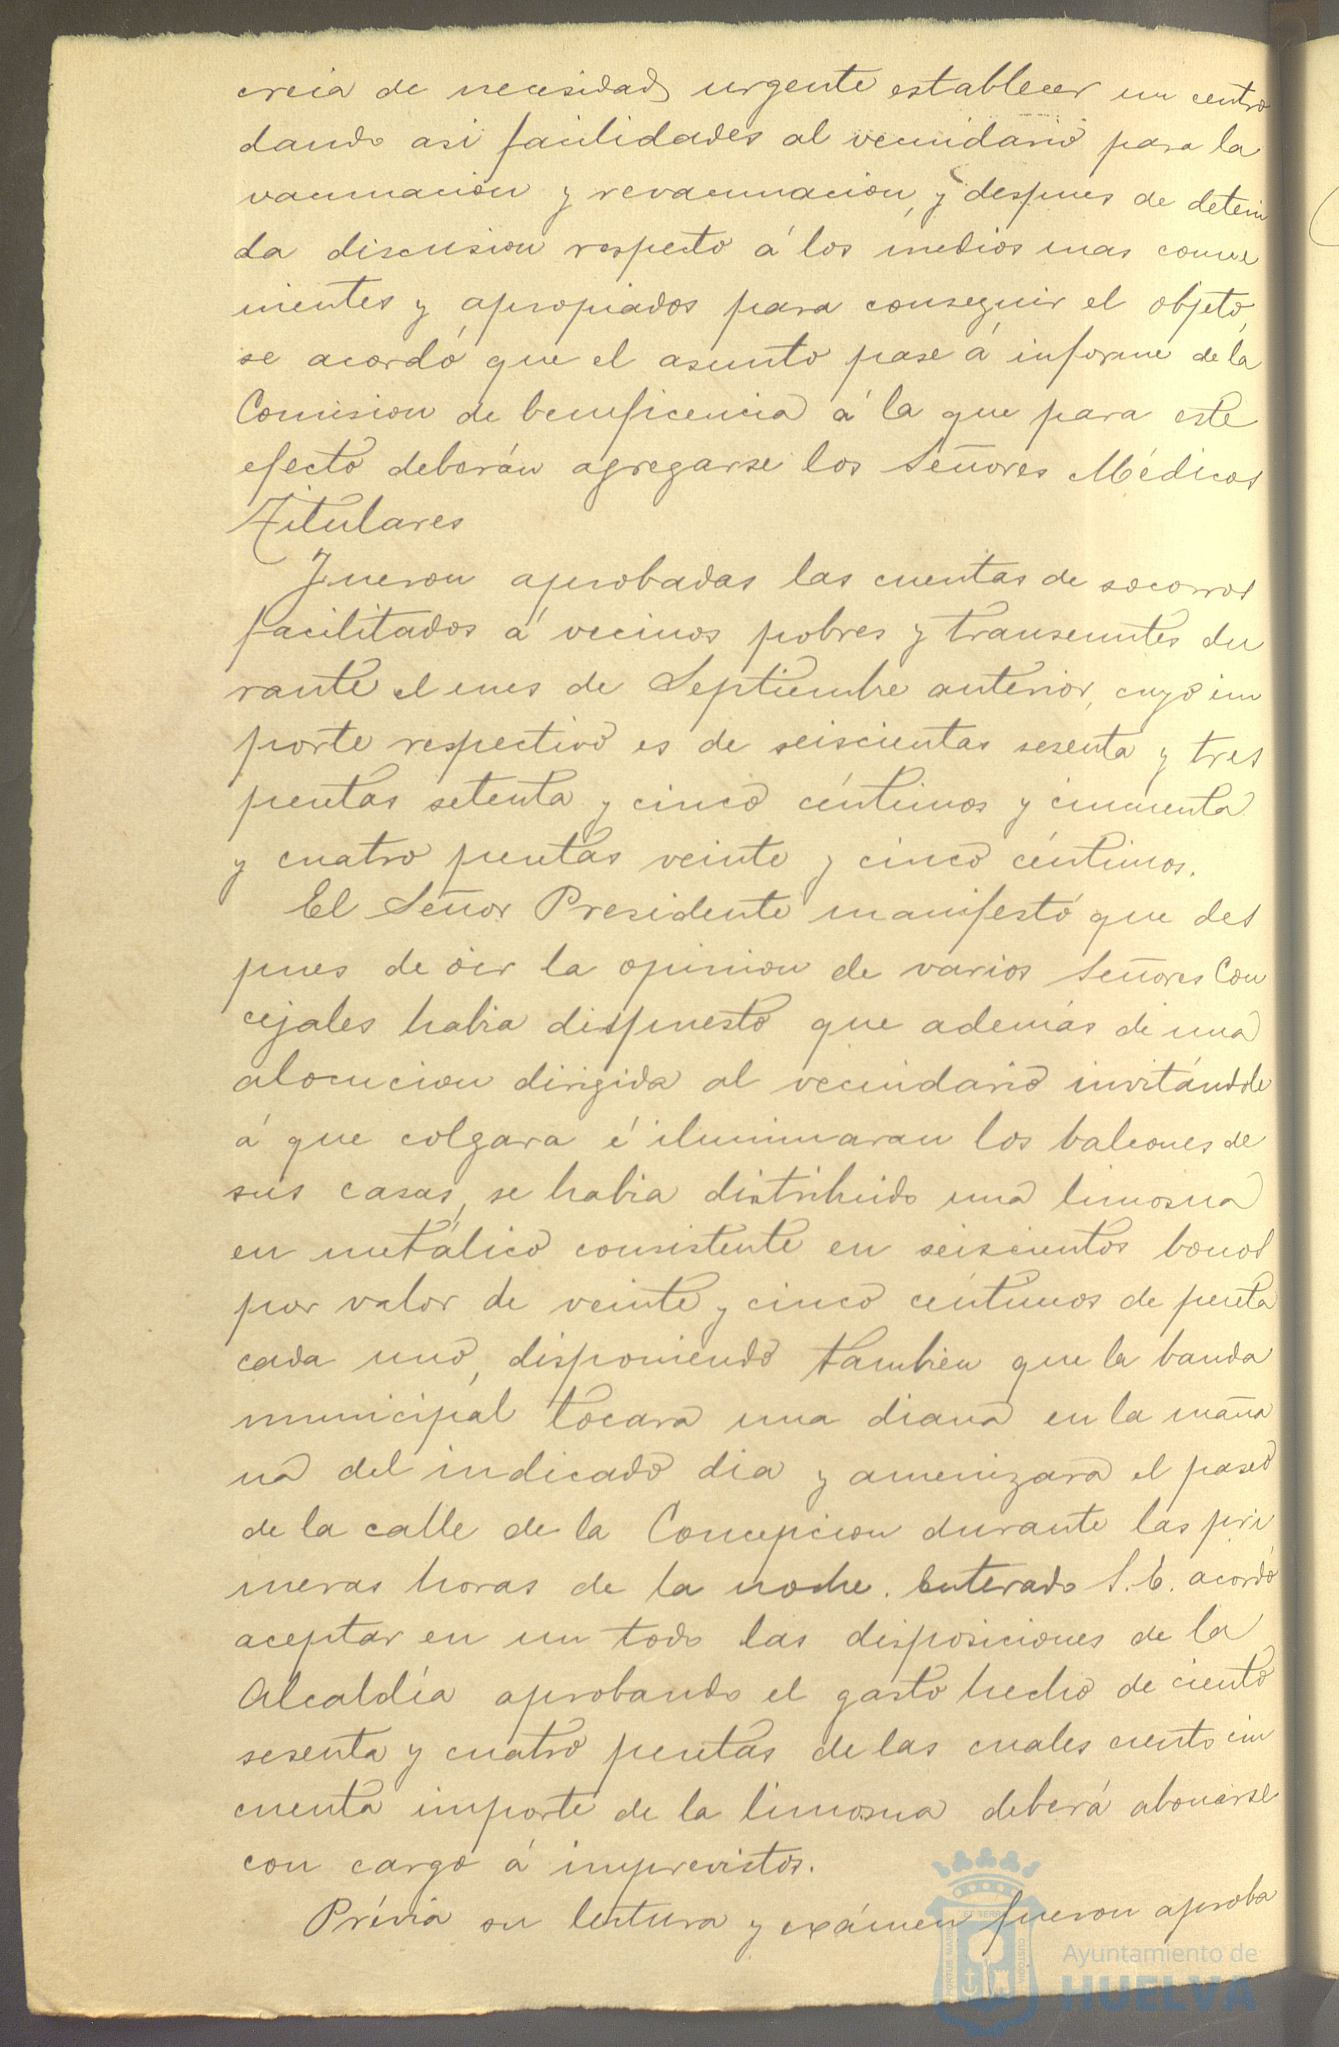 creia de necesidad urgente establecer un centro
dando asi facilidades al vecindario para la
vacunacion y revacunacion, y despues de deteni
da discusion respecto á los medios mas conve
nientes y apropiados para conseguir el objeto,
se acordó que el asunto pase á informe de la
Comision de beneficencia á la que para este
efecto deberán agregarse los Señores Médicos
Titulares
Fueron aprobadas las cuentas de socorros
facilitados á vecinos pobres y transeuntes du
rante el mes de Septiembre anterior, cuyo im
porte respectivo es de seiscientas sesenta y tres
pesetas setenta y cinco céntimos y cincuenta
y cuatro pesetas veinte y cinco céntimos.
El Señor Presidente manifestó que des
pues de oir la opinion de varios Señores Con
cejales habia dispuesto que además de una
alocucion dirigida al vecindario invitándole
á que colgara é iluminaran los balcones de
sus casas, se habia distribuido una limosna
en metálico consistente en seiscientos bonos
por valor de veinte y cinco céntimos de peseta
cada uno, disponiendo tambien que la banda
municipal tocara una diana en la maña
na del indicado dia y amenizara el paseo
de la calle de la Concepcion durante las pri
meras horas de la noche. Enterado S.E. acordó
aceptar en un todo las disposiciones de la
Alcaldía aprobando el gasto hecho de ciento
sesenta y cuatro pesetas de las cuales ciento cin
cuenta importe de la limosna deberá abonarse
con cargo á imprevistos.
Prévia su lectura y exámen fueron aproba
Ayuntamiento de
HUELVA